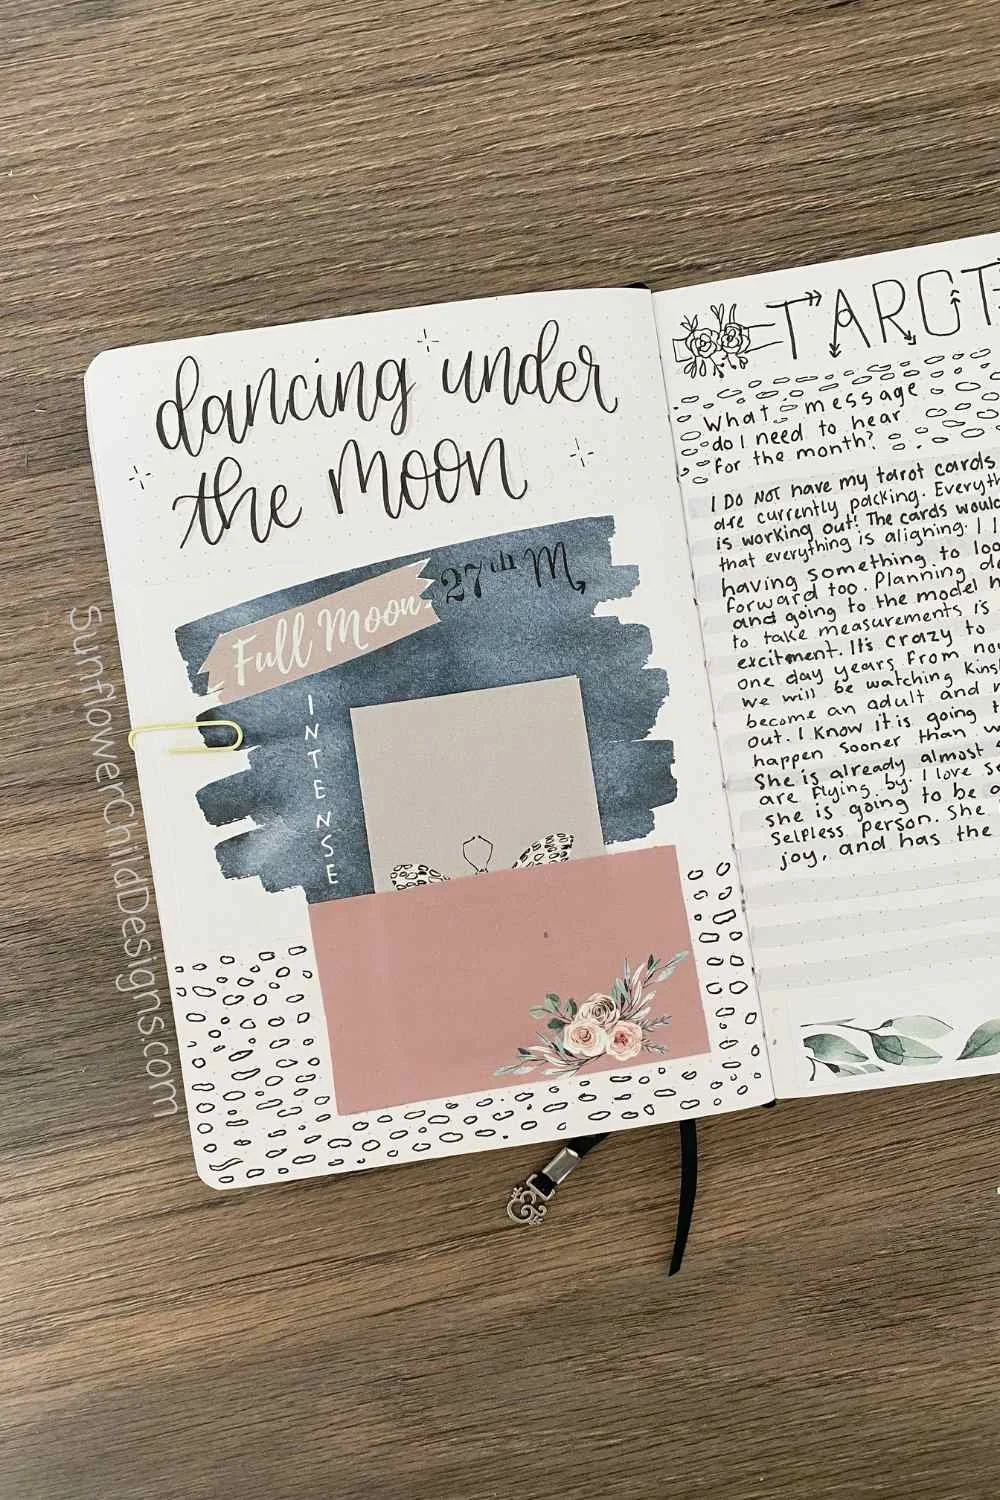 dancing under
the moon
Full Moon
27th M
INTENSE
SunflowerChildDesigns.com
TAROT
What message
do I need to hear
for the month?
I DO NOT have my tarot cards
are currently packing. Everyth
is working out! The cards would
that everything is aligning. I
having something to loo
forward too. Planning
and going to the model
to take measurements is
excitment. It's crazy to
one day years from now
we will be watching Kinsl
become an adult and
out. I know it is going t
happen sooner than w
She is already almost
are flying by. I love se
she is going to be a
Selfless person. She
joy, and has the